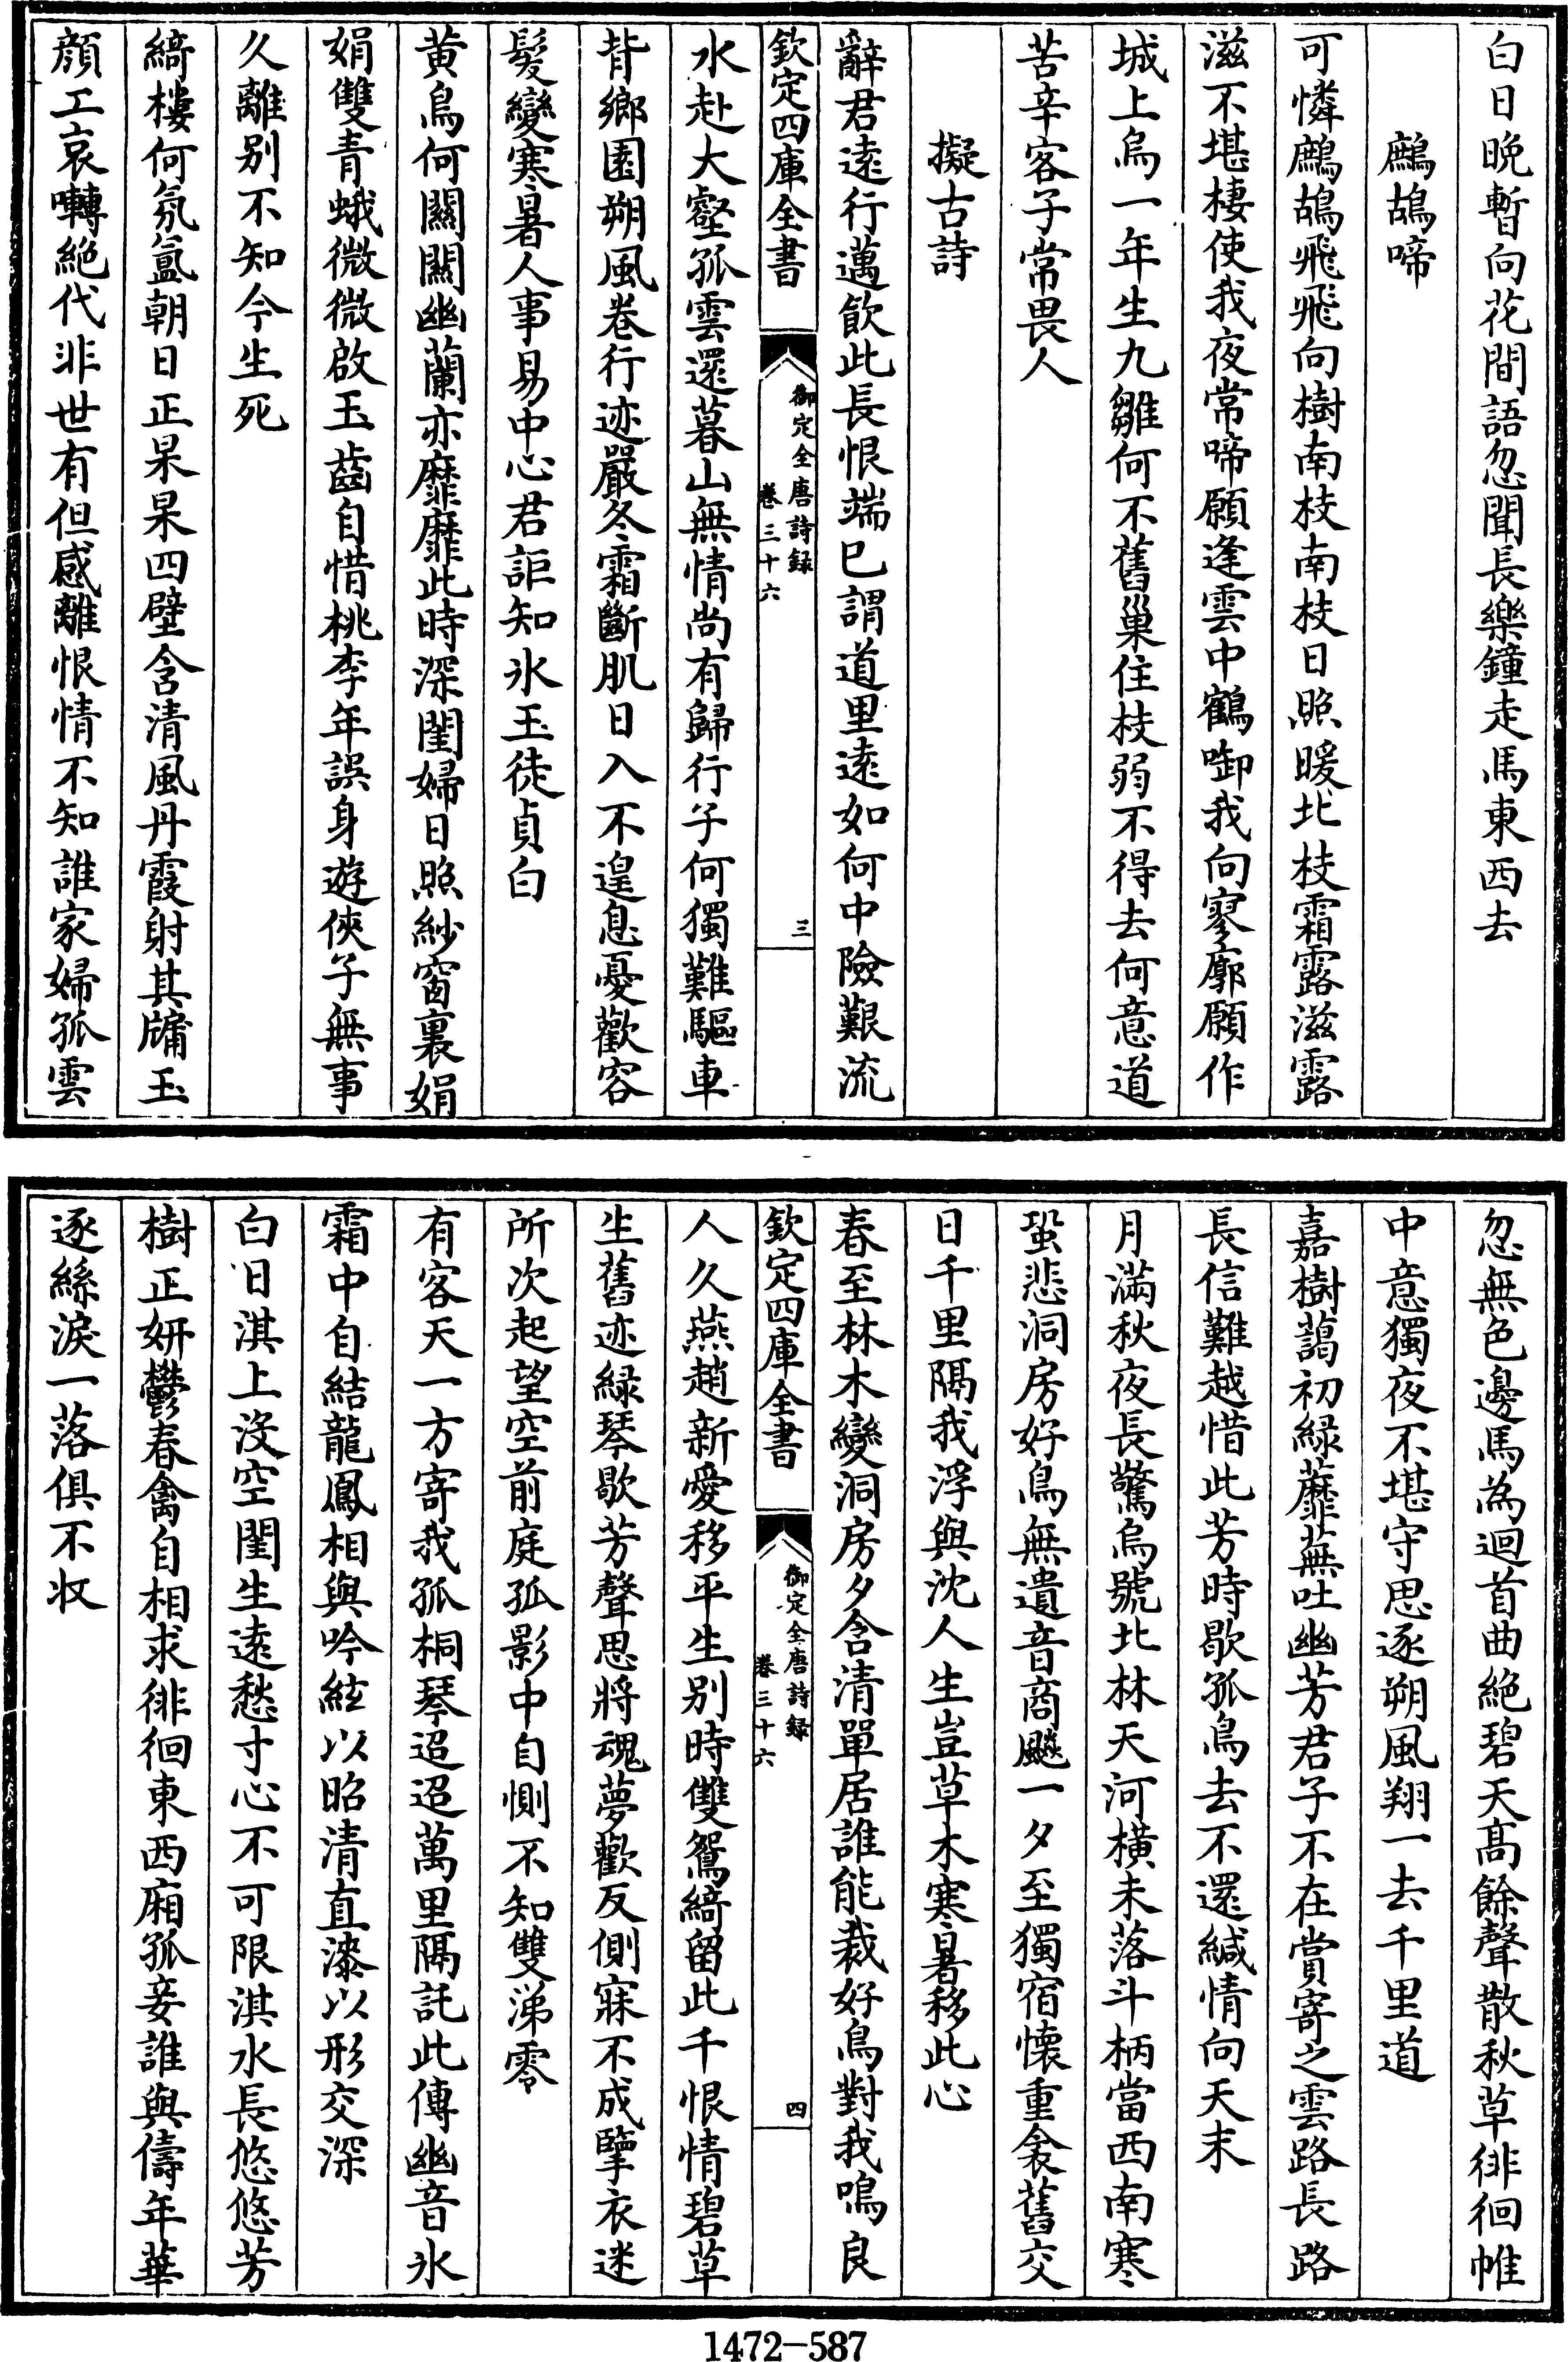 白日晚暫向花間語忽聞長樂鐘走馬東西去
鷓鴣啼
可憐鷓鴣飛飛向樹南枝南枝日照暖北枝霜露滋露
滋不堪棲使我夜常啼願逢雲中鶴啣我向寥廓願作
城上烏一年生九雛何不舊巢住枝弱不得去何意道
苦辛客子常畏人
擬古詩
辭君遠行邁飲此長恨端已謂道里遠如何中險艱流
欽定四庫全書
御定全唐詩録
卷三十六
三
水赴大壑孤雲還暮山無情尚有歸行子何獨難驅車
背鄉園朔風卷行迹嚴冬霜斷肌日入不遑息憂歡容
髮變寒暑人事易中心君詎知氷玉徒貞白
黃鳥何關關幽蘭亦靡靡此時深閨婦日照紗窗裏娟
娟雙青蛾微微啟玉齒自惜桃李年誤身遊俠子無事
久離別不知今生死
綺樓何氛氳朝日正杲杲四壁含清風丹霞射其牖玉
顏工哀囀絕代非世有但感離恨情不知誰家婦孤雲
忽無色邊馬為迴首曲絕碧天髙餘聲散秋草徘徊帷
中意獨夜不堪守思逐朔風翔一去千里道
嘉樹藹初緑蘼蕪吐幽芳君子不在賞寄之雲路長路
長信難越惜此芳時歇孤鳥去不還緘情向天末
月滿秋夜長驚烏號北林天河橫未落斗柄當西南寒
蛩悲洞房好鳥無遺音商飈一夕至獨宿懷重衾舊交
日千里隔我浮與沈人生豈草木寒暑移此心
春至林木變洞房夕含清單居誰能裁好鳥對我鳴良
欽定四庫全書
御定全唐詩録
卷三十六
四
人久燕趙新愛移平生別時雙鴛綺留此千恨情碧草
生舊迹緑琴歇芳聲思將魂夢歡反側寐不成擥衣迷
所次起望空前庭孤影中自惻不知雙涕零
有客天一方寄我孤桐琴迢迢萬里隔託此傳幽音氷
霜中自結龍鳳相與吟絃以昭清直漆以形交深
白日淇上没空閨生遠愁寸心不可限淇水長悠悠芳
樹正妍鬱春禽自相求徘徊東西廂孤妾誰與儔年華
逐絲淚一落俱不收
1472-587